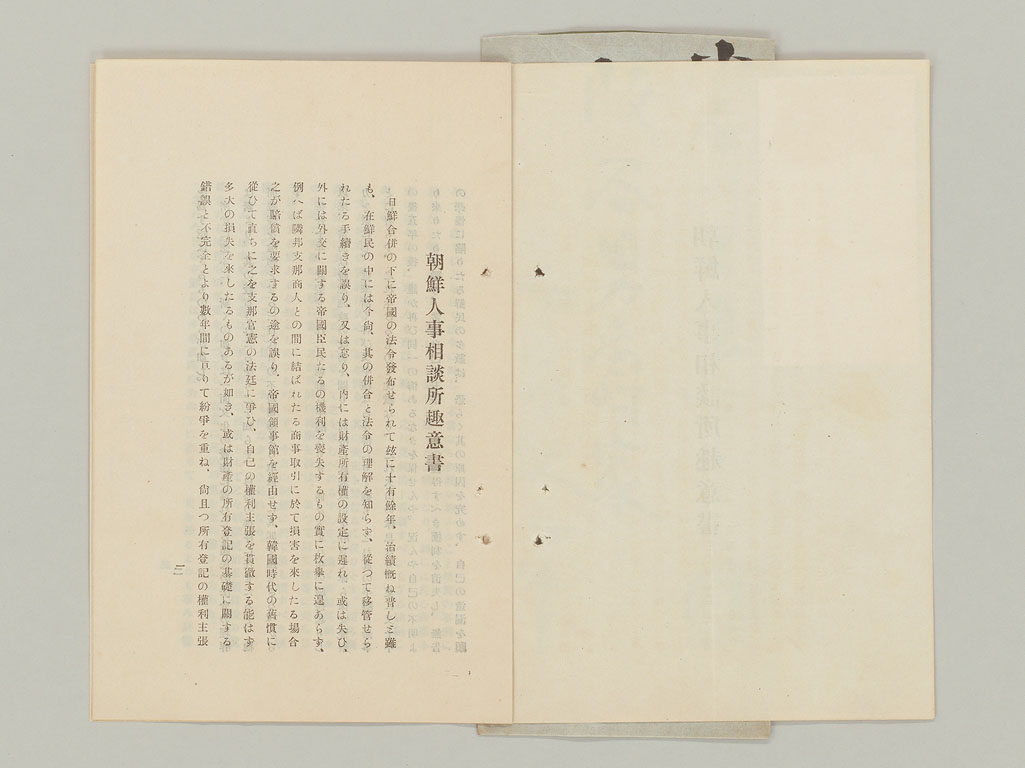 朝鮮人事相談所趣意書
日鮮合併の下に帝國の法令發布せられて玆に十有餘年、治績慨ね普しと雖
も、在鮮民の中には今尙、其の併合と法令の理解を知らす、從つて移管せら
れたる手續きを誤り、又は怠り、內には財產所有權の設定に遲れ、或は失ひ、
外には外交に關する帝國臣民たるの機利を喪失するもの實に枚擧に遑あらす、
例へば隣邦支那商人との間に結ばれたる商事取引に於て損害を來したる場合
之が賠償を要求するの途を誤り、帝國領事館を經由せす、韓國時代の舊慣に
從ひて直ちに之を支那官憲の法廷に爭ひ、自己の權利主張を貫徹する能はす
多大の損失を來したるものあるが如き、或は財產の所有登記の基礎に關する
錯誤と不完全とより數年間に亘りて紛爭を重ね、尙且つ所有登記の權利主張